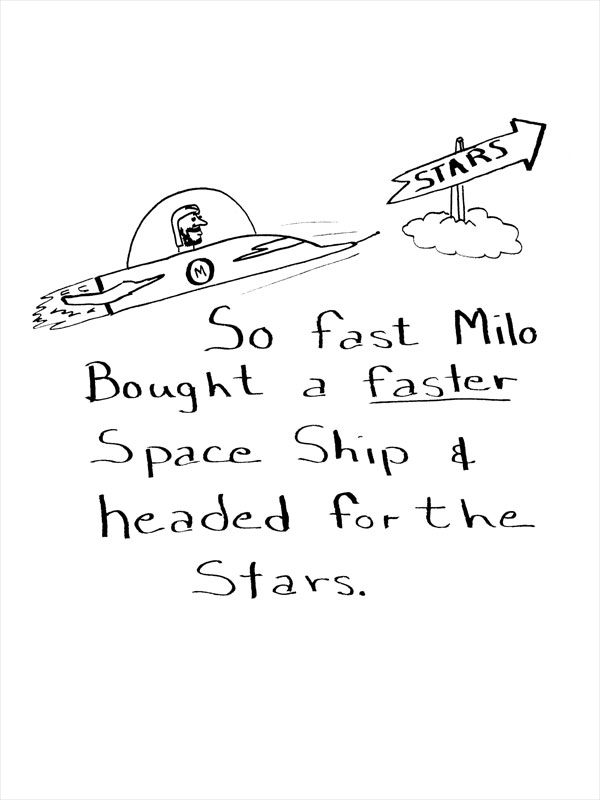 STARS
M
So fast Milo
Bought a faster
Space Ship &
headed for the
Stars.